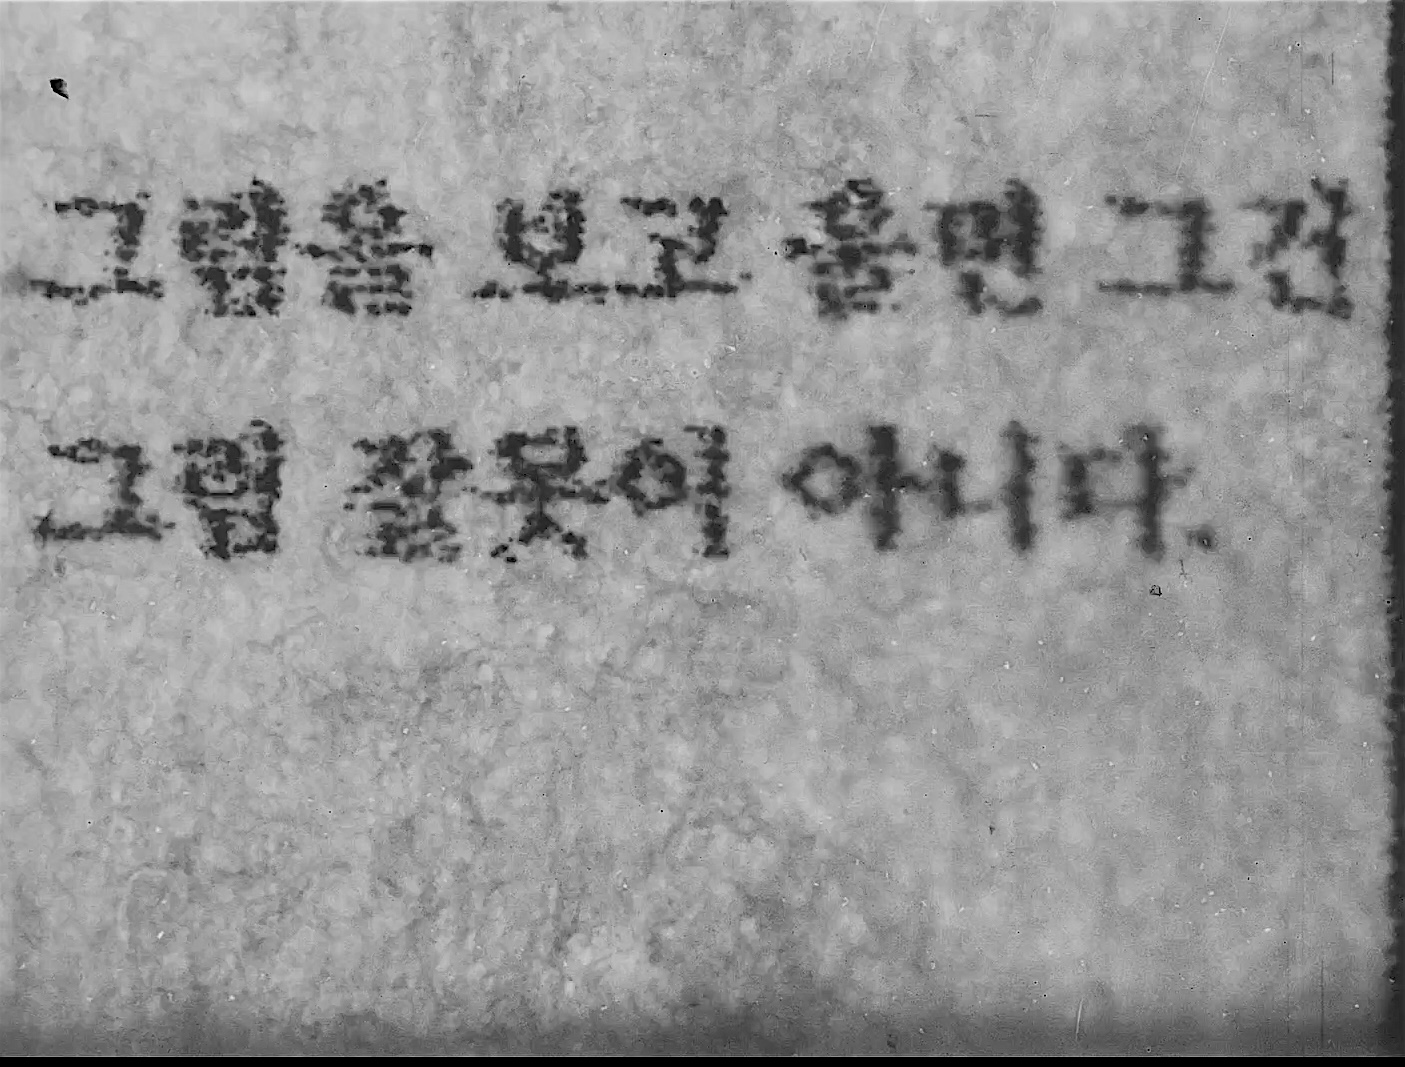 그림을 보고 울면 그건
그림 잘못이 아니다.